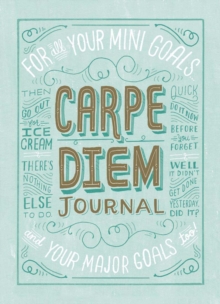 FOR all YOUR MINI GOALS
THEN
GO OUT
for
ICE
CREAM
THERE'S
NOTHING
ELSE
TO DO
CARPE
DIEM
JOURNAL
QUICK
DO IT NOW
BEFORE
you
FORGET
WELL
IT DIDN'T
GET DONE
YESTERDAY,
DID IT?
and YOUR MAJOR GOALS too!